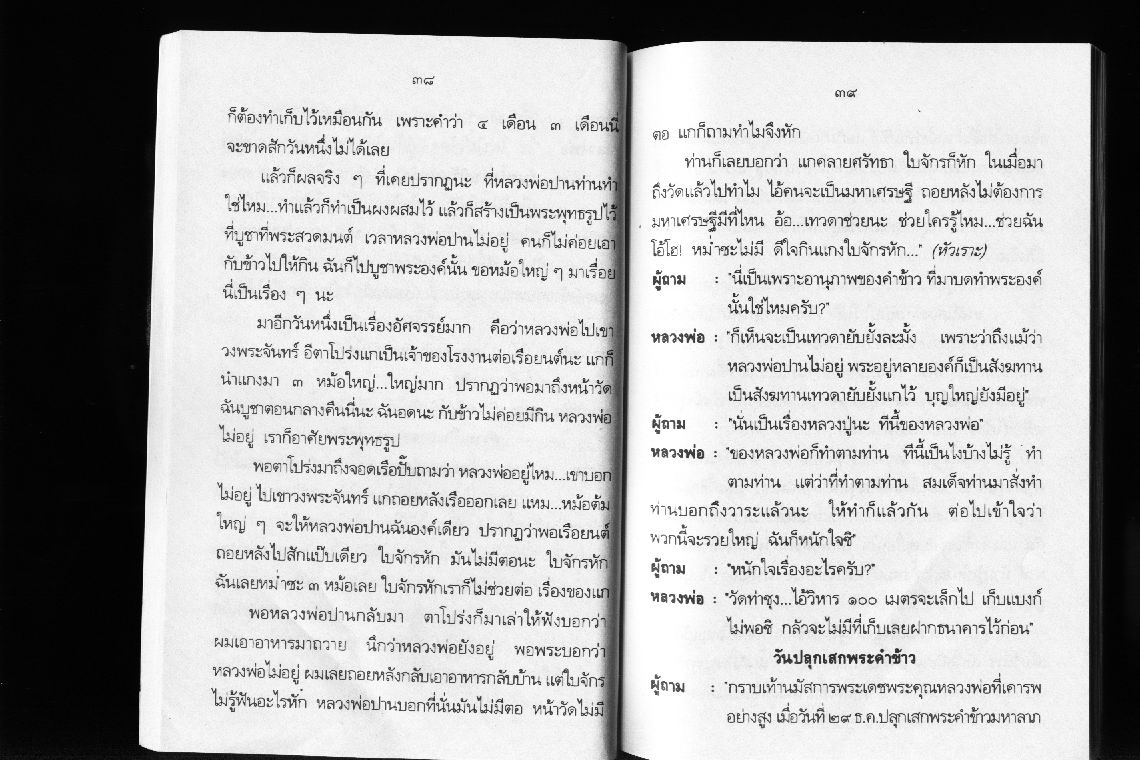 ๓๘
ก็ต้องทำเก็บไว้เหมือนกัน เพราะคำว่า ๔ เดือน ๓ เดือนนี่
จะขาดสักวันหนึ่งไม่ได้เลย
แล้วก็ผลจริง ๆ ที่เคยปรากฏนะ ที่หลวงพ่อปานท่านทำ
ใช่ไหม...ทำแล้วก็ทำเป็นผงผสมไว้ แล้วก็สร้างเป็นพระพุทธรูปไว้
ที่บูชาที่พระสวดมนต์ เวลาหลวงพ่อปานไม่อยู่ คนก็ไม่ค่อยเอา
กับข้าวไปให้กิน ฉันก็ไปบูชาพระองค์นั้น ขอหม้อใหญ่ ๆ มาเรื่อย
นี่เป็นเรื่อง ๆ นะ
มาอีกวันหนึ่งเป็นเรื่องอัศจรรย์มาก คือว่าหลวงพ่อไปเขา
วงพระจันทร์ อีตาโปร่งแกเป็นเจ้าของโรงงานต่อเรือยนต์นะ แกก็
นำแกงมา ๓ หม้อใหญ่...ใหญ่มาก ปรากฏว่าพอมาถึงหน้าวัด
ฉันบูชาตอนกลางคืนนี่นะ ฉันอดนะ กับข้าวไม่ค่อยมีกิน หลวงพ่อ
ไม่อยู่ เราก็อาศัยพระพุทธรูป
พอตาโปร่งมาถึงจอดเรือปั๊บถามว่า หลวงพ่ออยู่ไหม...เขาบอก
ไม่อยู่ ไปเขาวงพระจันทร์ แกถอยหลังเรือออกเลย แหม...หม้อต้ม
ใหญ่ ๆ จะให้หลวงพ่อปานฉันองค์เดียว ปรากฏว่าพอเรือยนต์
ถอยหลังไปสักแป๊บเดียว ใบจักรหัก มันไม่มีตอนะ ใบจักรหัก
ฉันเลยหม่ำซะ ๓ หม้อเลย ใบจักรหักเราก็ไม่ช่วยต่อ เรื่องของแก
พอหลวงพ่อปานกลับมา ตาโปร่งก็มาเล่าให้ฟังบอกว่า
ผมเอาอาหารมาถวาย นึกว่าหลวงพ่อยังอยู่ พอพระบอกว่า
หลวงพ่อไม่อยู่ ผมเลยถอยหลังกลับเอาอาหารกลับบ้าน แต่ใบจักร
ไม่รู้ฟันอะไรหัก หลวงพ่อปานบอกที่นั่นมันไม่มีตอ หน้าวัดไม่มี
๓๙
ตอ แกก็ถามทำไมจึงหัก
ท่านก็เลยบอกว่า แกคลายศรัทธา ใบจักรก็หัก ในเมื่อมา
ถึงวัดแล้วไปทำไม ไอ้คนจะเป็นมหาเศรษฐี ถอยหลังไม่ต้องการ
มหาเศรษฐีมีที่ไหน อ้อ...เทวดาช่วยนะ ช่วยใครรู้ไหม...ช่วยฉัน
โอ้โฮ! หม่ำซะไม่มี ดีใจกินแกงใบจักรหัก..." (หัวเราะ)
ผู้ถาม : "นี่เป็นเพราะอานุภาพของคำข้าว ที่มาบดทำพระองค์
นั้นใช่ไหมครับ?"
หลวงพ่อ : "ก็เห็นจะเป็นเทวดายับยั้งละมั้ง เพราะว่าถึงแม้ว่า
หลวงพ่อปานไม่อยู่ พระอยู่หลายองค์ก็เป็นสังฆทาน
เป็นสังฆทานเทวดายับยั้งแกไว้ บุญใหญ่ยังมีอยู่"
ผู้ถาม : "นั่นเป็นเรื่องหลวงปู่นะ ทีนี้ของหลวงพ่อ"
หลวงพ่อ : "ของหลวงพ่อก็ทำตามท่าน ทีนี้เป็นไงบ้างไม่รู้ ทำ
ตามท่าน แต่ว่าที่ทำตามท่าน สมเด็จท่านมาสั่งทำ
ท่านบอกถึงวาระแล้วนะ ให้ทำก็แล้วกัน ต่อไปเข้าใจว่า
พวกนี้จะรวยใหญ่ ฉันก็หนักใจซิ"
ผู้ถาม : "หนักใจเรื่องอะไรครับ?"
หลวงพ่อ : "วัดท่าซุง...ไอ้วิหาร ๑๐๐ เมตรจะเล็กไป เก็บแบงก์
ไม่พอซิ กลัวจะไม่มีที่เก็บเลยฝากธนาคารไว้ก่อน"
วันปลุกเสกพระคำข้าว
ผู้ถาม : "กราบเท้านมัสการพระเดชพระคุณหลวงพ่อที่เคารพ
อย่างสูง เมื่อวันที่ ๒๙ ธ.ค.ปลุกเสกพระคำข้าวมหาลาภ